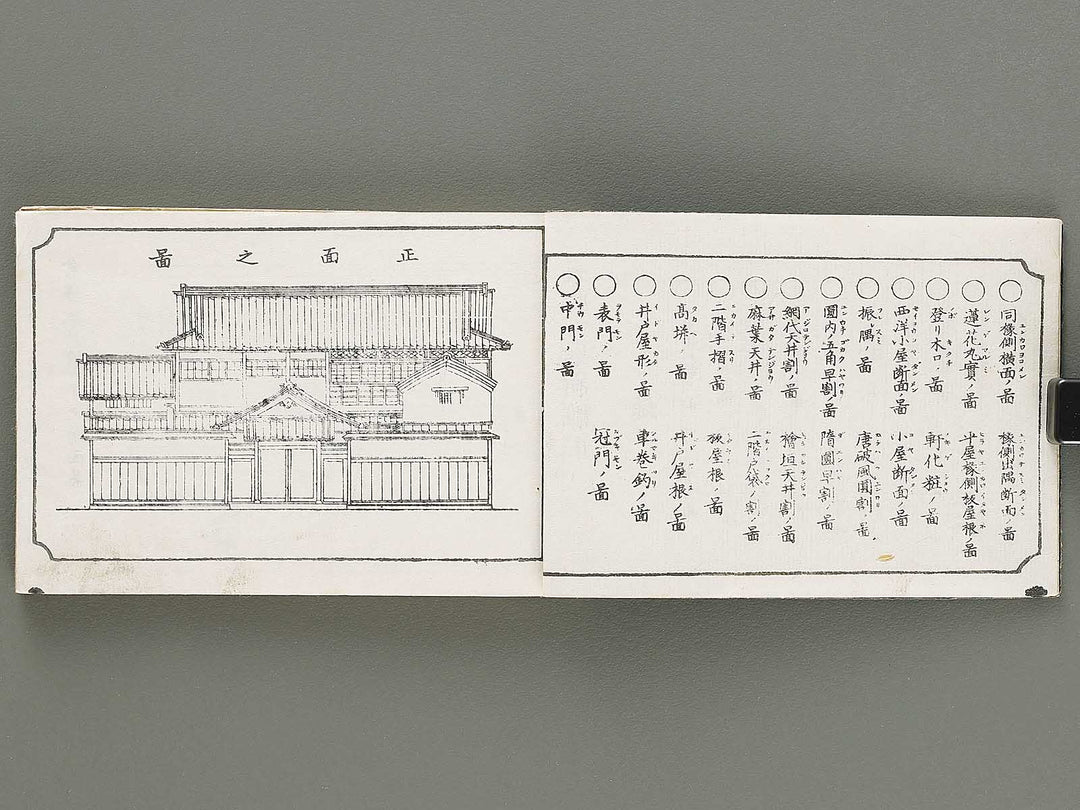 同椽側横面ノ啚
椽側出隅断面ノ啚
蓮花丸實ノ啚
平屋椽側板屋根ノ啚
登リ木口ノ啚
軒化粧ノ啚
西洋小屋断面ノ啚
小屋断面ノ啚
振隅ノ啚
唐破風圓割ノ啚
圓内五角早割ノ啚
隋圓早割ノ啚
網代天井割ノ啚
檜垣天井割ノ啚
麻葉天井ノ啚
二階戸袋ノ割ノ啚
二階手摺ノ啚
板屋根ノ啚
高塀ノ啚
井戸屋根ノ啚
井戸屋形ノ啚
車巻釣ノ啚
表門ノ啚
冠門ノ啚
中門ノ啚
正面之啚